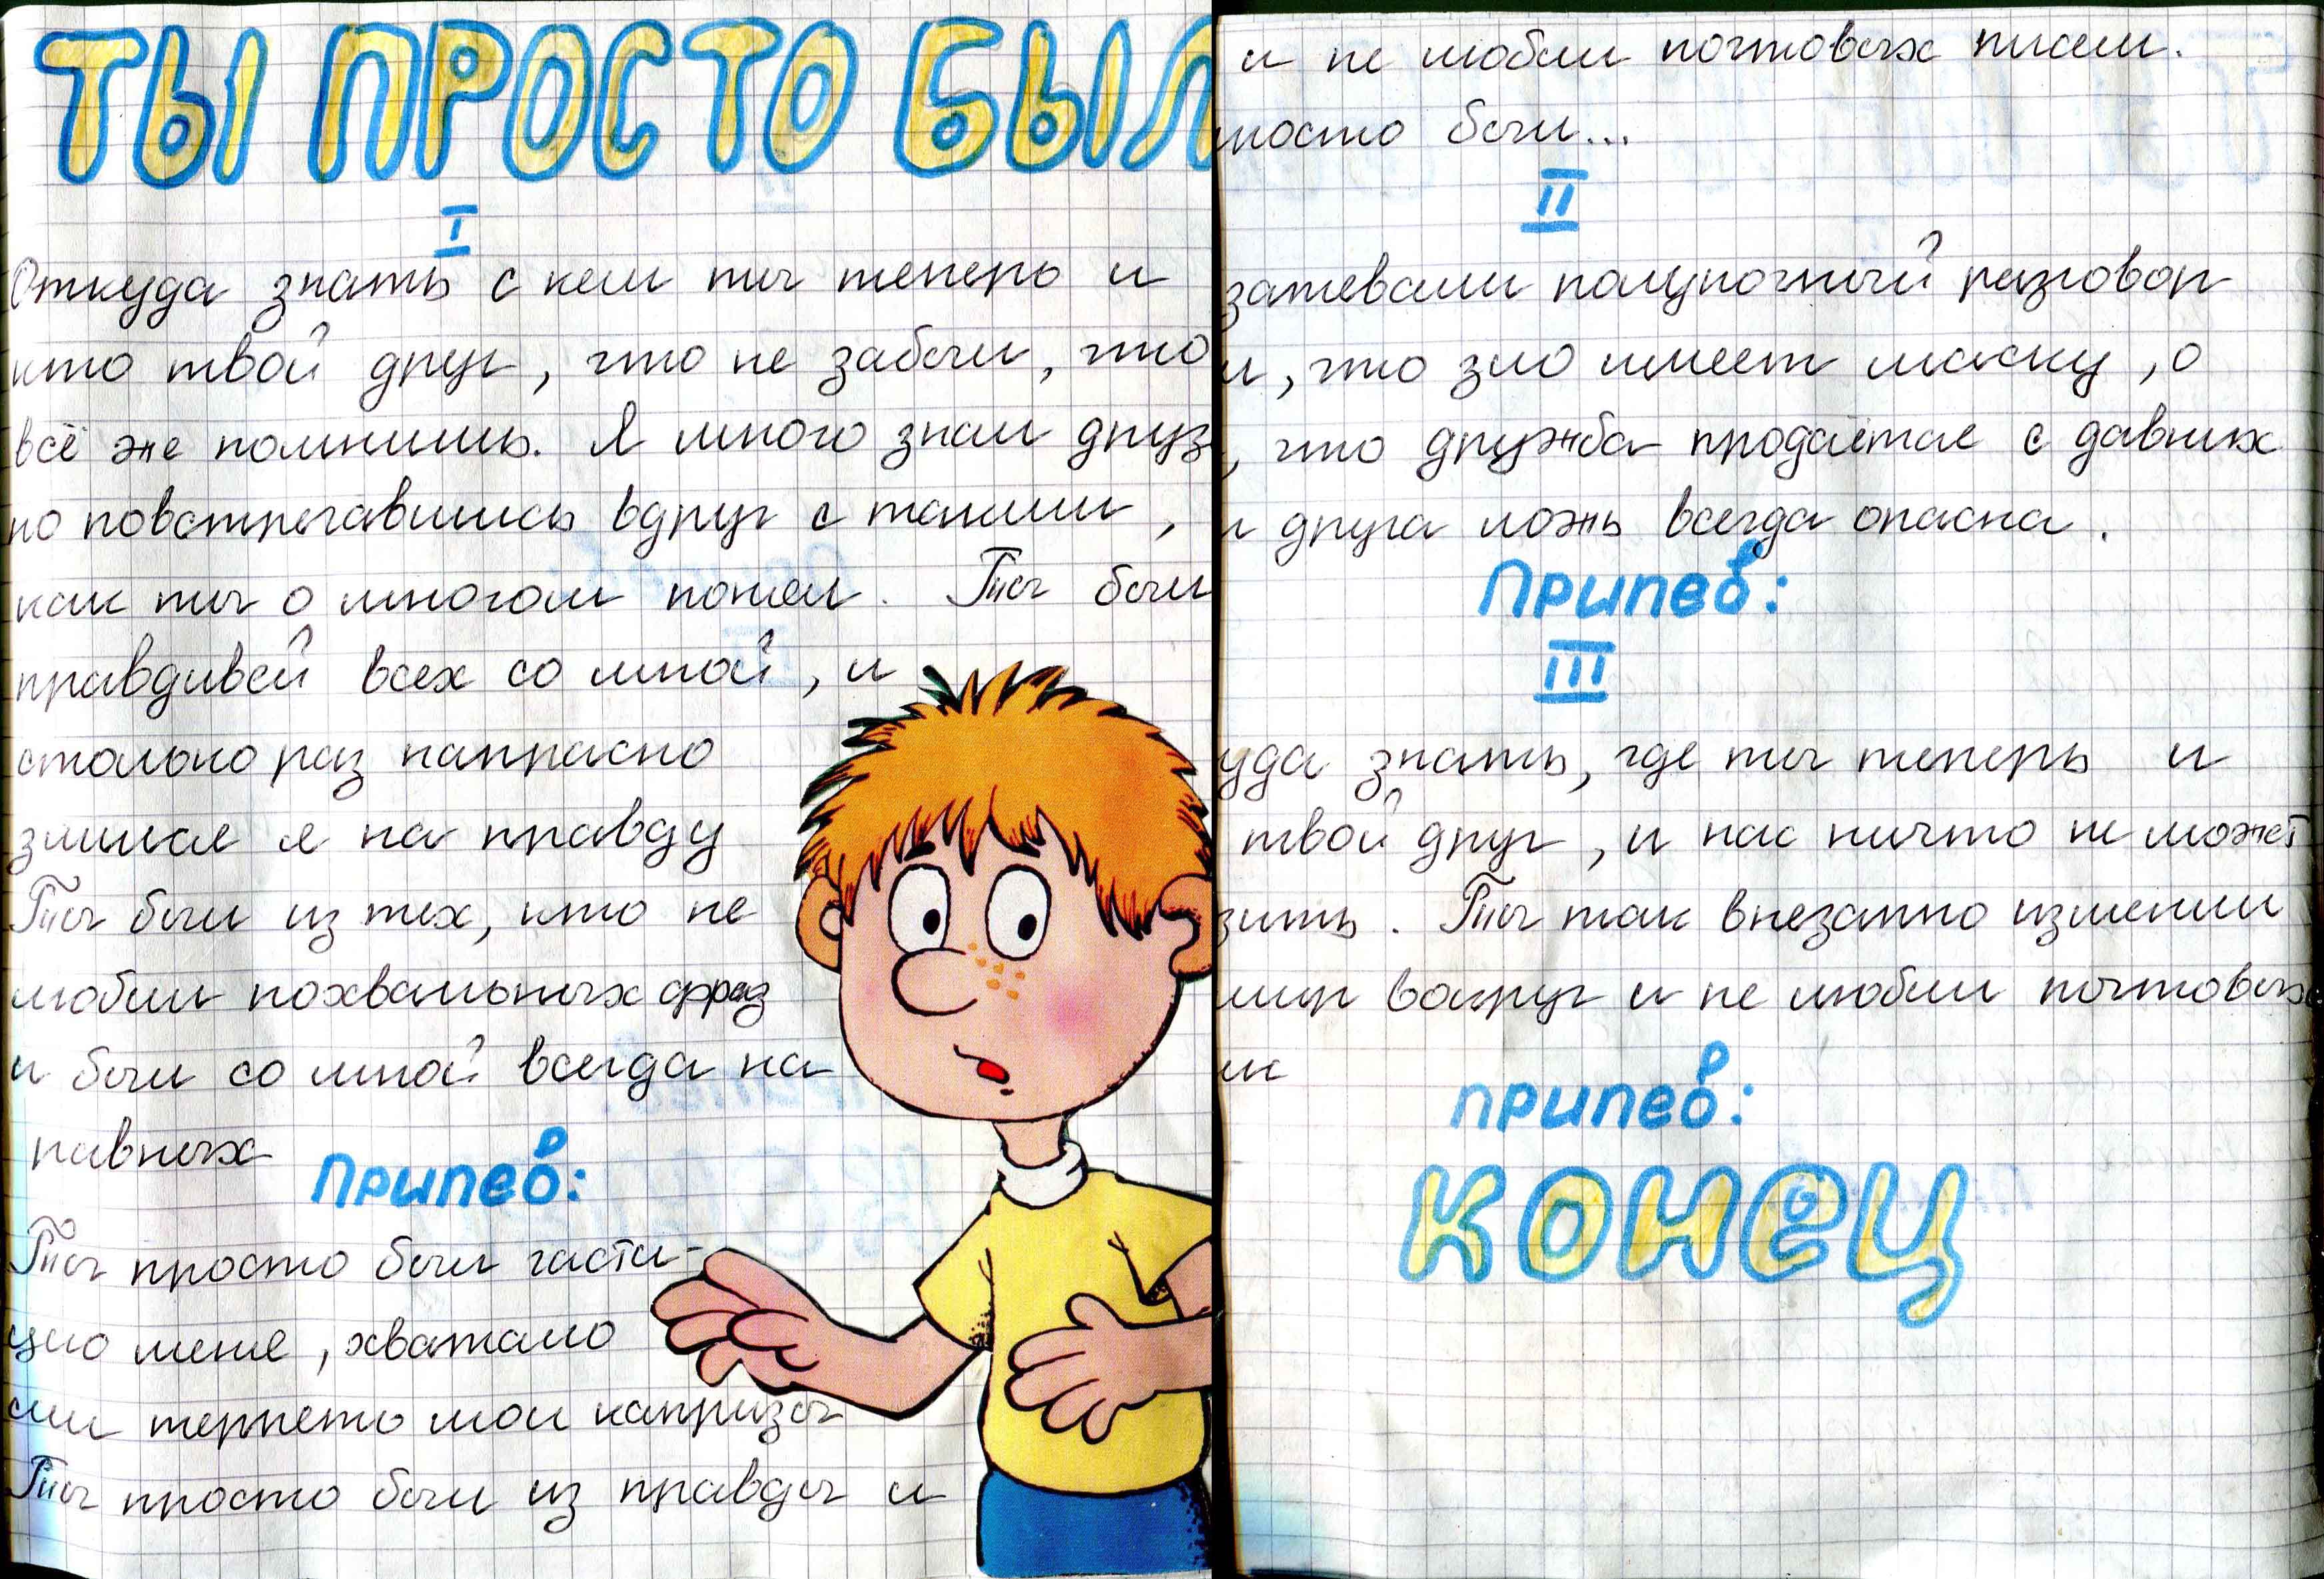 ТЫ ПРОСТО БЫЛ
I
Откуда знать с кем ты теперь и
кто твой друг, что не забыл, что
всё же помнишь. Я много знал друз
но повстречавшись вдруг с такими,
как ты о многом понял. Ты был
правдивей всех со мной, и
столько раз напрасно
злился я на правду
Ты был из тех, кто не
любил похвальных фраз
и был со мной всегда на
равных
Припев:
Ты просто был части-
цею меня, хватало
сил терпеть мои капризы
Ты просто был из правды и
и не любил почтовых писем.
просто был...
II
затевали полуночный разговор
и, что зло имеет маску, о
, что дружба продаётся с давних
и друга ложь всегда опасна.
Припев:
III
уда знать, где ты теперь и
твой друг, и нас ничто не может
зить. Ты так внезапно изменил
мир вокруг и не любил почтовых
припев:
КОНЕЦ